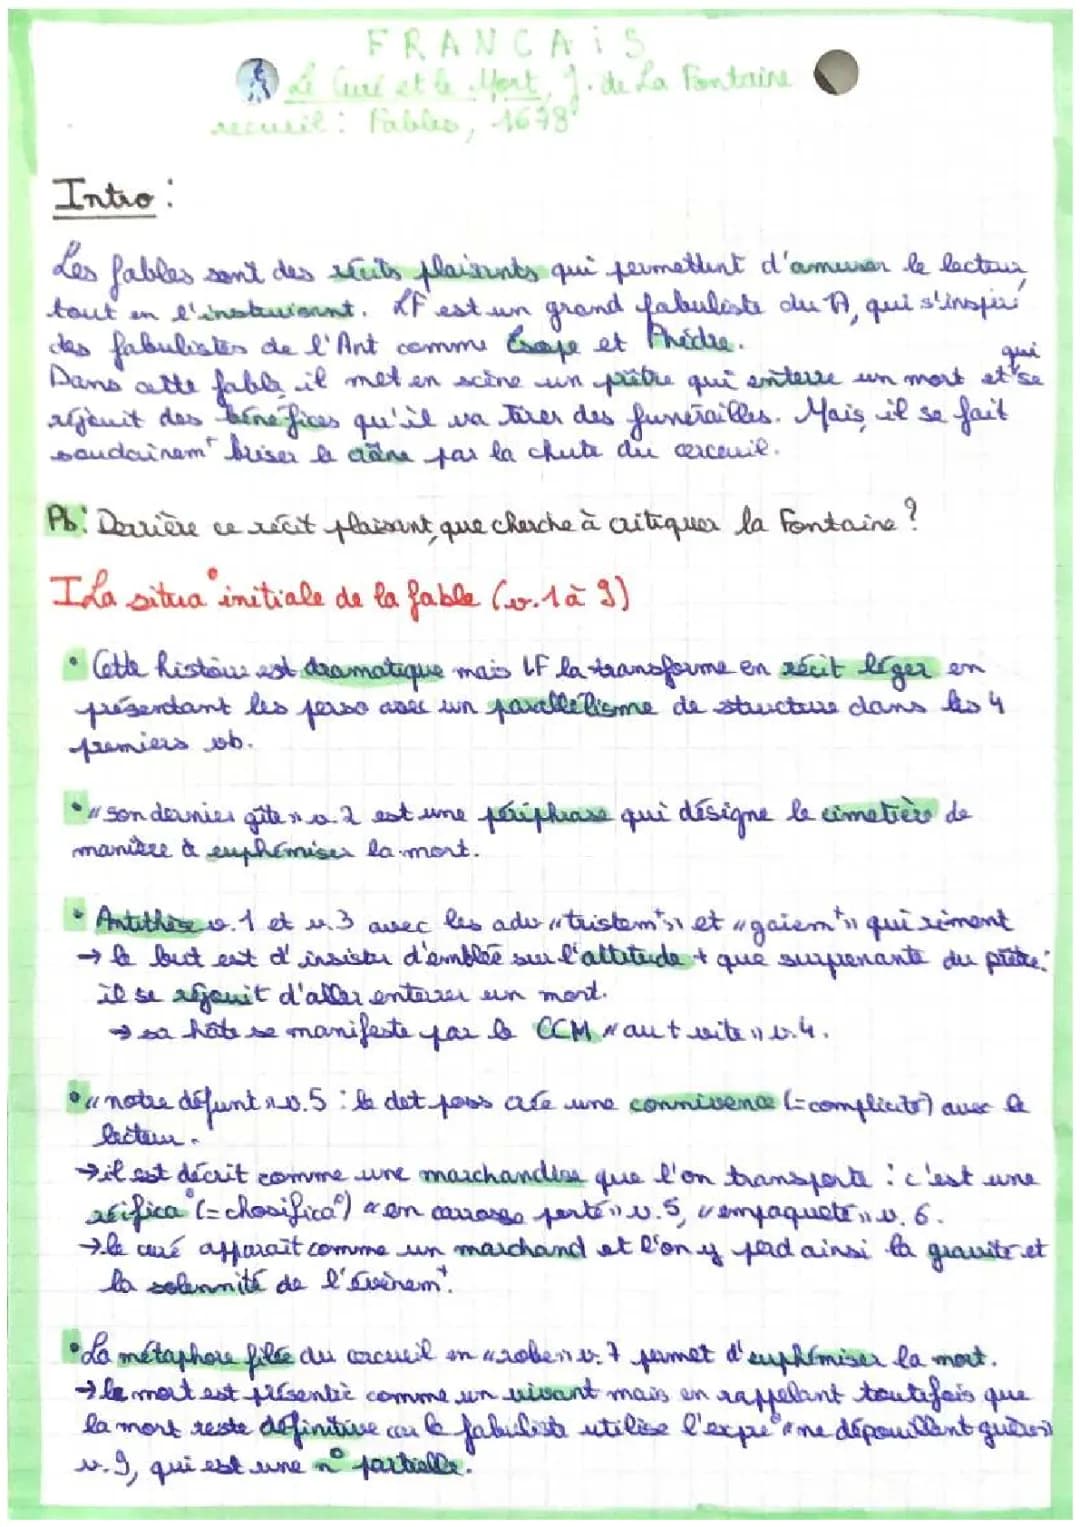 FRANCAiS
Le Curé et le Mort, J. de La Fontaine
recueil : Fables, 1678
Intro :
Les fables sont des récits plaisants qui permettent d'amuser le lecteur
tout en l'instruisant. LF est un grand fabuliste du 17, qui s'inspire
des fabulistes de l'Ant comme Esope et Phèdre.
Dans cette fable, il met en scène un prêtre qui enterre un mort et qui se
réjouit des bénéfices qu'il va tirer des funérailles. Mais, il se fait
soudainemt briser le crâne par la chute du cercueil.
Pb : Derrière ce récit plaisant, que cherche à critiquer la Fontaine ?
I La situa° initiale de la fable (v.1 à 9)
• Cette histoire est dramatique mais LF la transforme en récit léger en
présentant les perso avec un parallélisme de structure dans les 4
premiers vb.
• "son dernier gîte" v.2 est une périphrase qui désigne le cimetière de
manière à euphémiser la mort.
• Antithèse v.1 et v.3 avec les adv "tristemt" et "gaiemt" qui riment
→ le but est d'insister d'emblée sur l'attitude + que surprenante du prêtre :
il se réjouit d'aller enterrer un mort.
→ sa hâte se manifeste par le CCM "au + vite" v.4.
• "notre défunt" v.5 : le det poss crée une connivence (=complicité) avec le
lecteur.
→ il est décrit comme une marchandise que l'on transporte : c'est une
réifica° (=chosifica°) "en carrosse porté" v.5, "empaqueté" v.6.
→ le curé apparait comme un marchand et l'on y perd ainsi la gravité et
la solennité de l'évènemt.
• La métaphore filée du cercueil en "robe" v.7 permet d'euphémiser la mort.
→ le mort est présenté comme un vivant mais en rappelant toutefois que
la mort reste définitive car le fabuliste utilise l'expre° "ne dépouillent guère"
v.9, qui est une n° partielle.